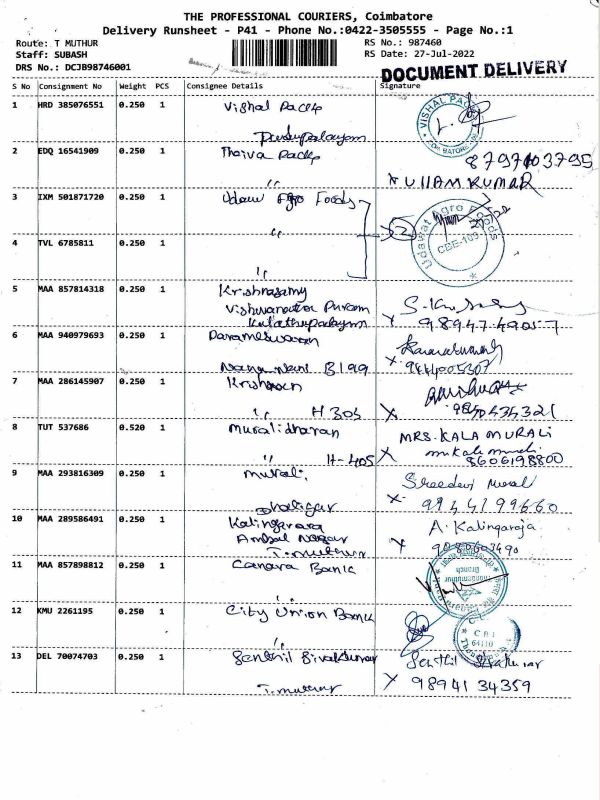 THE PROFESSIONAL COURIERS, Coimbatore
Delivery Runsheet - P41 - Phone No.:0422-3505555 - Page No.:1
Route: T MUTHUR RS No.: 987460
Staff: SUBASH RS Date: 27-Jul-2022
DRS No.: DCJB98746001
DOCUMENT DELIVERY
S No Consignment No Weight PCS Consignee Details Signature
1 HRD 385076551 0.250 1 Vishal Packs
VISHAL PAC
2 EDQ 16541909 0.250 1 Thaiva Packs
8797103795
UTTAM KUMAR
3 IXM 501871720 0.250 1 Udaw Agro Foods
2
Udawat Agro Foods
CBE-103
4 TVL 6785811 0.250 1 "
5 MAA 857814318 0.250 1 Krishnasamy
Vishwanatha Puram
Kulathupalayam
X 98947 49057
6 MAA 940979693 0.250 1 Parameswaran
Nana Nani B199
X 9444005307
7 MAA 286145907 0.250 1 Krishnan
" H 305 X
8 TUT 537686 0.520 1 Muralidharan MRS. KALA MURALI
" H-405 X 8606198800
9 MAA 293816309 0.250 1 Murali
X 94441 99660
10 MAA 289586491 0.250 1 Kalingaraja A. Kalingaraja
Ambal Nagar
T.muthur X
11 MAA 857898812 0.250 1 Canara Bank
12 KMU 2261195 0.250 1 City Union Bank
"
13 DEL 70074703 0.250 1 Senthil Sivakumar
T.muthur X 98941 34359